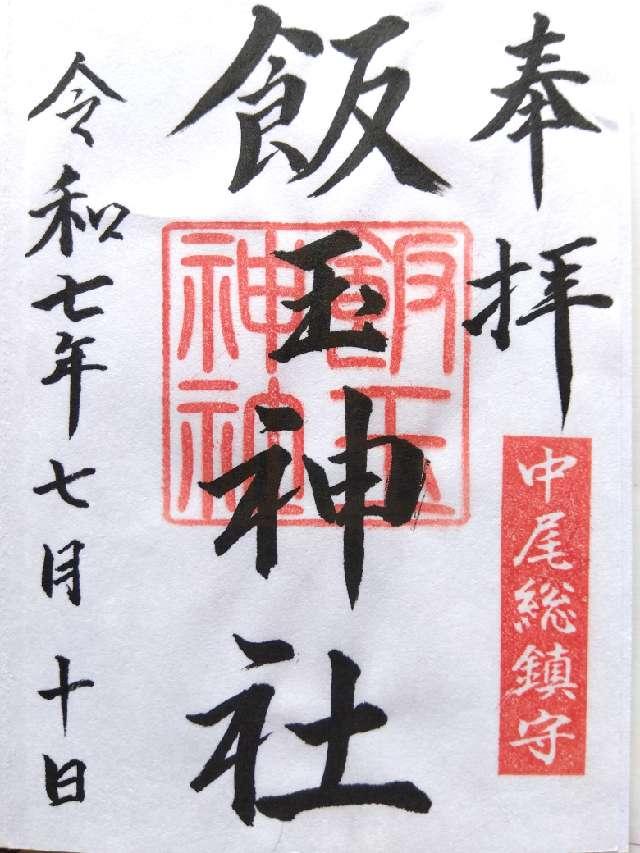 奉拝
中尾総鎮守
飯玉神社
飯玉神社
令和七年七月十日